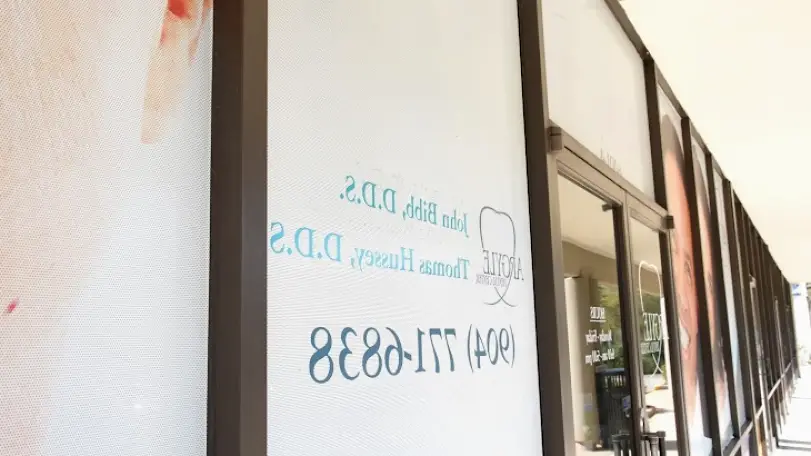 John Bibb, D.D.S.
Thomas Hussey, D.D.S
ARGYLE
(904) 771-6838
HOURS
ARGYLE